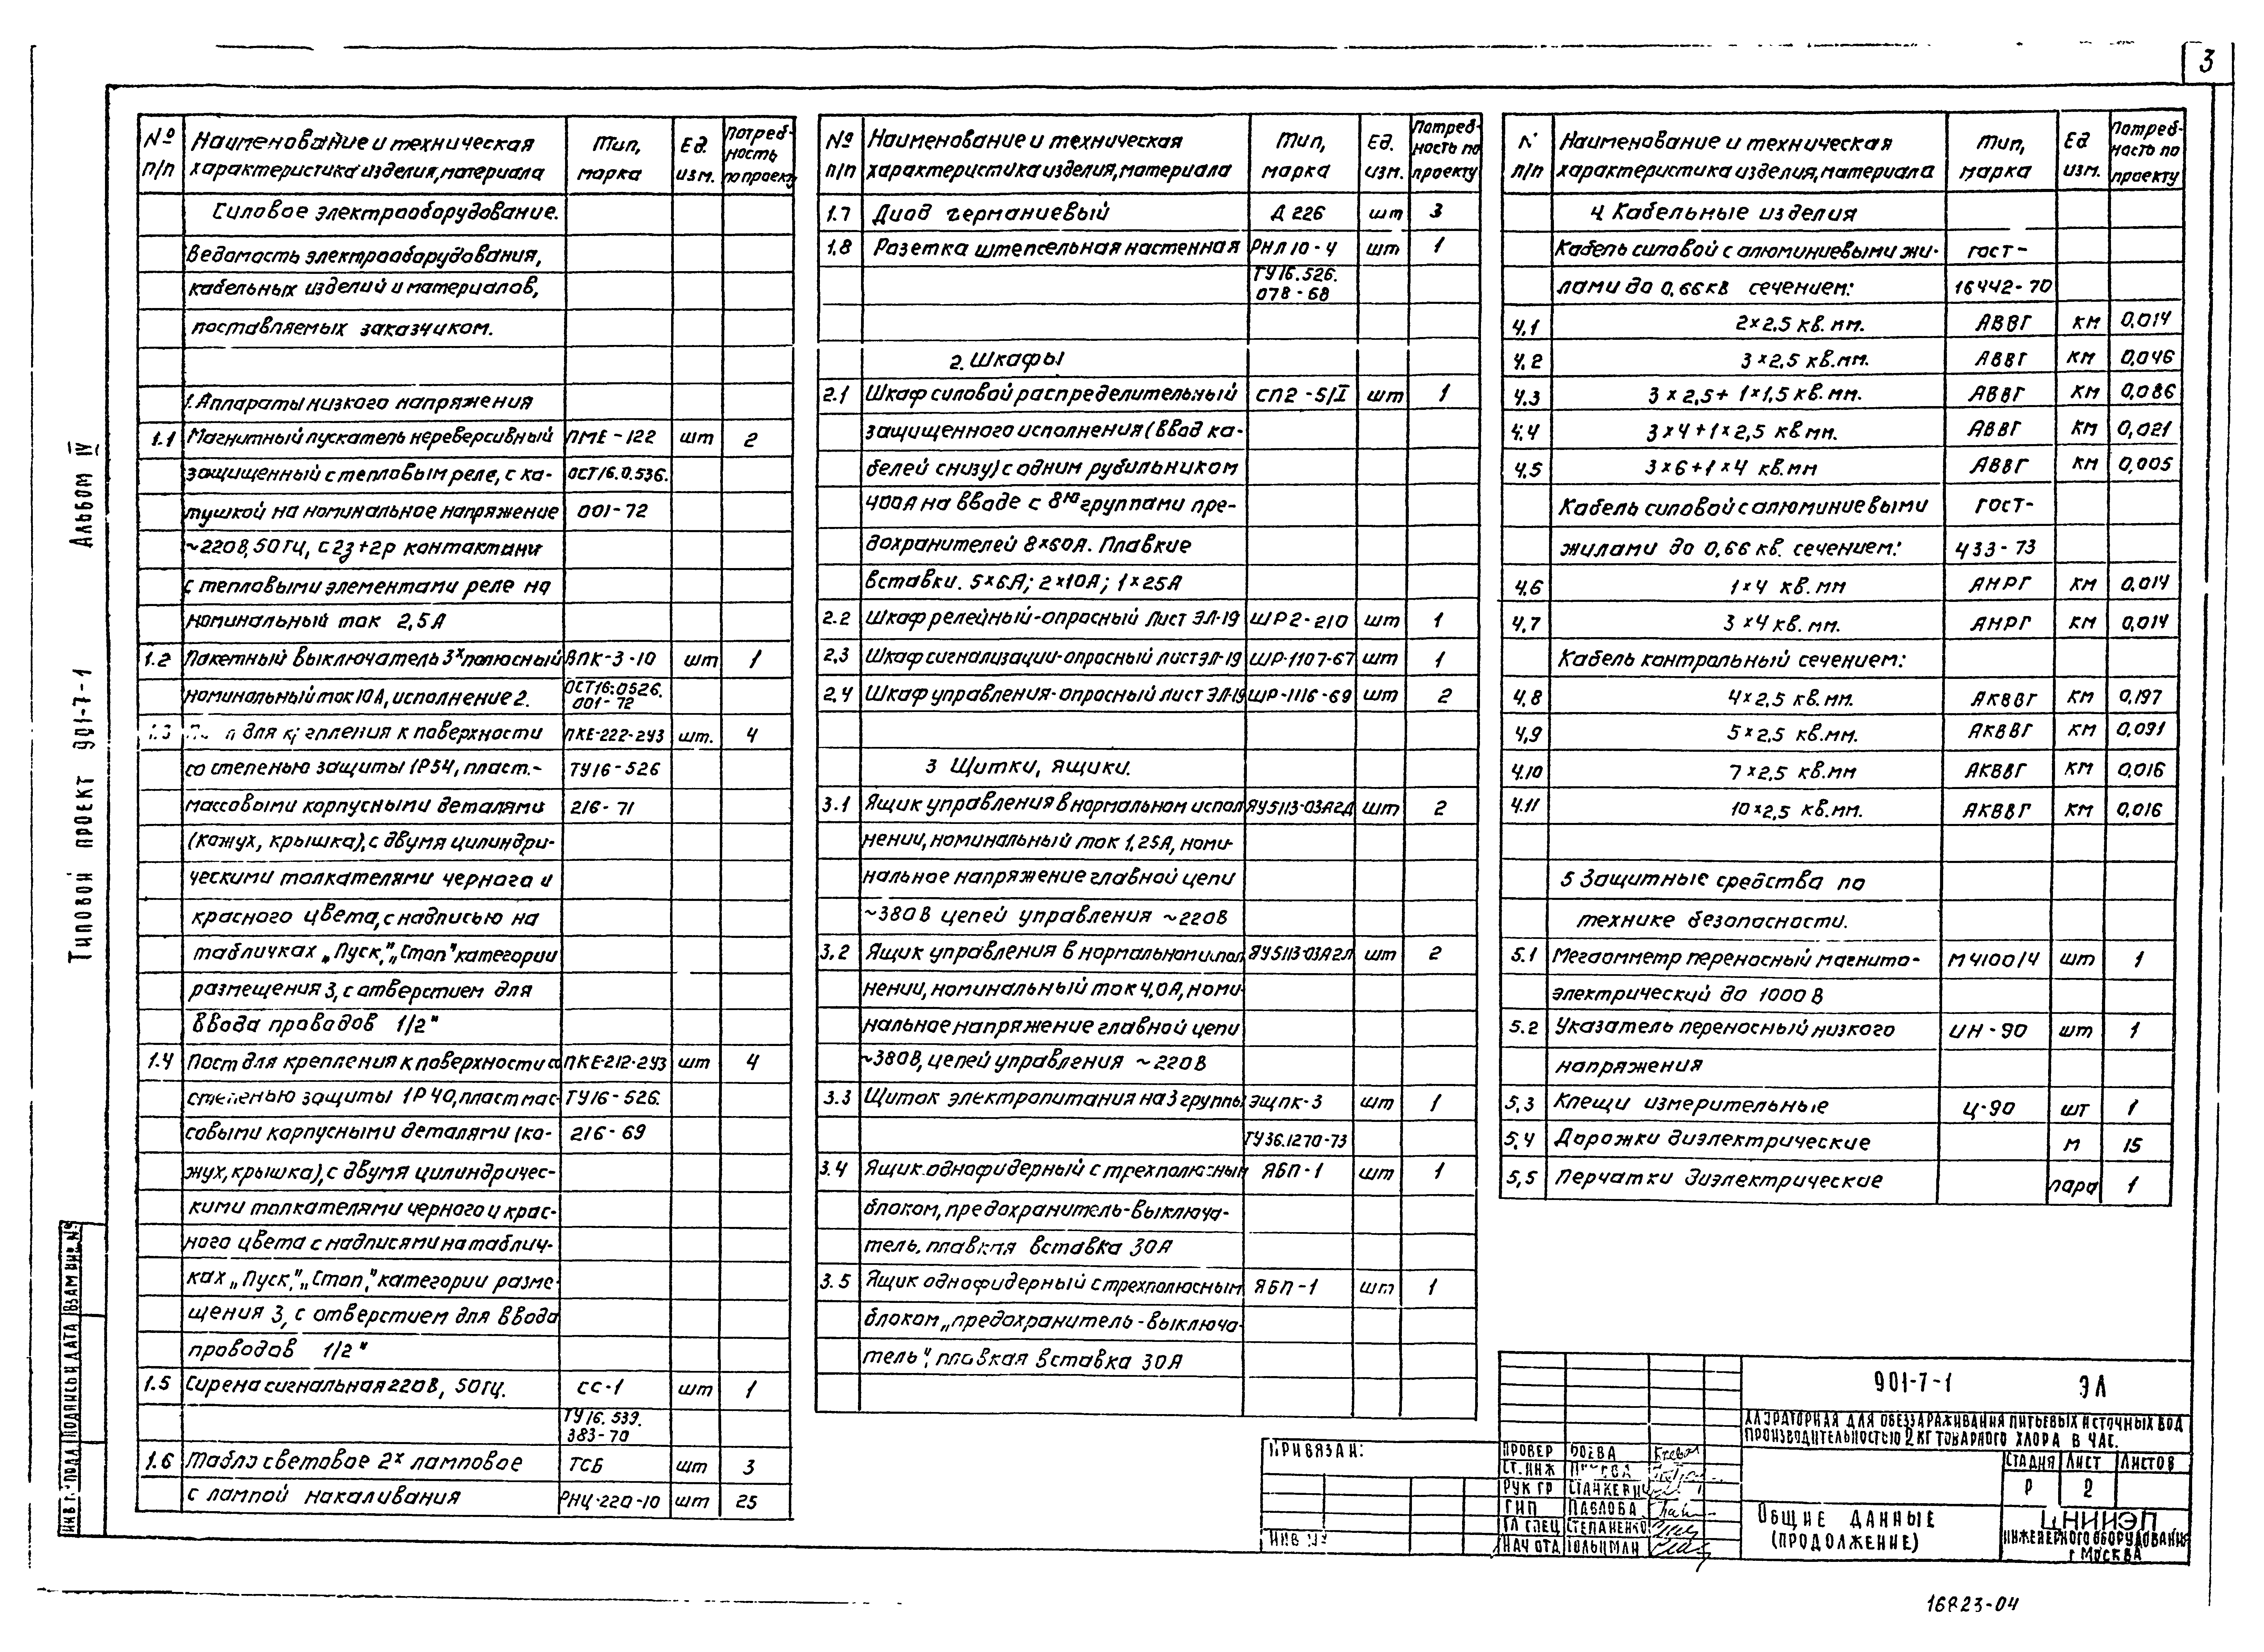 3
Альбом IV
Типовой проект 901-7-1
№ п/п Наименование и техническая характеристика изделия, материала Тип, марка Ед. изм. Потреб-ность по проекту
Силовое электрооборудование.
Ведомость электрооборудования,
кабельных изделий и материалов,
поставляемых заказчиком.
1. Аппараты низкого напряжения
1.1 Магнитный пускатель нереверсивный ПМЕ-122 шт 2
защищенный с тепловым реле, с ка- ОСТ16.0.536.
тушкой на номинальное напряжение 001-72
~220В, 50 Гц, с 2з+2р контактами
с тепловыми элементами реле на
номинальный ток 2,5А
1.2 Пакетный выключатель 3х полюсный ВПК-3-10 шт 1
номинальный ток 10А, исполнение 2. ОСТ16.0526.
001-72
1.3 для крепления к поверхности ПКЕ-222-2У3 шт. 4
со степенью защиты IР54, пласт.- ТУ16-526
массовыми корпусными деталями 216-71
(кожух, крышка), с двумя цилиндри-
ческими толкателями черного и
красного цвета, с надписью на
табличках „Пуск", „Стоп" категории
размещения 3, с отверстием для
ввода проводов 1/2"
1.4 Пост для крепления к поверхности со ПКЕ-212-2У3 шт 4
степенью защиты IР40, пластмас- ТУ16-526.
совыми корпусными деталями (ко- 216-69
жух, крышка), с двумя цилиндричес-
кими толкателями черного и крас-
ного цвета с надписями на таблич-
ках „Пуск", „Стоп", категории разме-
щения 3, с отверстием для ввода
проводов 1/2"
1.5 Сирена сигнальная 220В, 50гц. СС-1 шт 1
ТУ16.539.
383-70
1.6 Табло световое 2х ламповое ТСБ шт 3
с лампой накаливания РНЦ-220-10 шт 25
№ п/п Наименование и техническая характеристика изделия, материала Тип, марка Ед. изм. Потреб-ность по проекту
1.7 Диод германиевый Д 226 шт 3
1.8 Розетка штепсельная настенная РНЛ10-4 шт 1
ТУ16.526.
078-68
2. Шкафы
2.1 Шкаф силовой распределительный СП2-5/I шт 1
защищенного исполнения (ввод ка-
белей снизу) с одним рубильником
400А на вводе с 8ю группами пре-
дохранителей 8×60А. Плавкие
вставки. 5×6А; 2×10А; 1×25А
2.2 Шкаф релейный-опросный лист ЭЛ-19 ШР2-210 шт 1
2.3 Шкаф сигнализации-опросный лист ЭЛ-19 ШР-1107-67 шт 1
2.4 Шкаф управления-опросный лист ЭЛ-19 ШР-1116-69 шт 2
3 Щитки, ящики.
3.1 Ящик управления в нормальном испол ЯУ5113-03А2Д шт 2
нении, номинальный ток 1,25А, номи-
нальное напряжение главной цепи
~380В цепей управления ~220В
3.2 Ящик управления в нормальном испол ЯУ5113-03А2Л шт 2
нении, номинальный ток 4,0А, номи-
нальное напряжение главной цепи
~380В, цепей управления ~220В
3.3 Щиток электропитания на 3 группы ЭЩПК-3 шт 1
ТУ36.1270-73
3.4 Ящик однофидерный с трехполюсным ЯБП-1 шт 1
блоком, предохранитель-выключа-
тель. плавкая вставка 30А
3.5 Ящик однофидерный с трехполюсным ЯБП-1 шт 1
блоком „предохранитель-выключа-
тель", плавкая вставка 30А
№ п/п Наименование и техническая характеристика изделия, материала Тип, марка Ед изм. Потреб-ность по проекту
4 Кабельные изделия
Кабель силовой с алюминиевыми жи- гост-
лами до 0,66кв сечением: 16442-70
4.1 2×2,5 кв.мм. АВВГ км 0,014
4.2 3×2,5 кв.мм. АВВГ км 0,046
4.3 3×2,5+1×1,5 кв.мм. АВВГ км 0,086
4.4 3×4+1×2,5 кв мм. АВВГ км 0,021
4.5 3×6+1×4 кв.мм АВВГ км 0,005
Кабель силовой с алюминиевыми гост-
жилами до 0,66 кв. сечением: 433-73
4.6 1×4 кв.мм АНРГ км 0,014
4.7 3×4 кв.мм. АНРГ км 0,014
Кабель контрольный сечением:
4.8 4×2,5 кв.мм. АКВВГ км 0,197
4.9 5×2,5 кв.мм. АКВВГ км 0,091
4.10 7×2,5 кв.мм АКВВГ км 0,016
4.11 10×2,5 кв.мм. АКВВГ км 0,016
5 Защитные средства по
технике безопасности.
5.1 Мегаомметр переносный магнито- М4100/4 шт 1
электрический до 1000В
5.2 Указатель переносный низкого ИН-90 шт 1
напряжения
5.3 Клещи измерительные Ц-90 шт 1
5.4 Дорожки диэлектрические м 15
5.5 Перчатки диэлектрические пара 1
ИНВ № ПОДЛ ПОДПИСЬ И ДАТА ВЗАМ ИНВ. №
ПРИВЯЗАН:
ИНВ №
ПРОВЕР БОЕВА
СТ.ИНЖ
РУК ГР СТАНКЕВИЧ
ГИП ПАВЛОВА
ГЛ СПЕЦ СТЕПАНЕНКО
НАЧ ОТД ГОЛЬЦМАН
901-7-1 ЭЛ
ХЛОРАТОРНАЯ ДЛЯ ОБЕЗЗАРАЖИВАНИЯ ПИТЬЕВЫХ И СТОЧНЫХ ВОД
ПРОИЗВОДИТЕЛЬНОСТЬЮ 2 КГ ТОВАРНОГО ХЛОРА В ЧАС.
СТАДИЯ ЛИСТ ЛИСТОВ
Р 2
ОБЩИЕ ДАННЫЕ
(ПРОДОЛЖЕНИЕ)
ЦНИИЭП
ИНЖЕНЕРНОГО ОБОРУДОВАНИЯ
г МОСКВА
16823-04